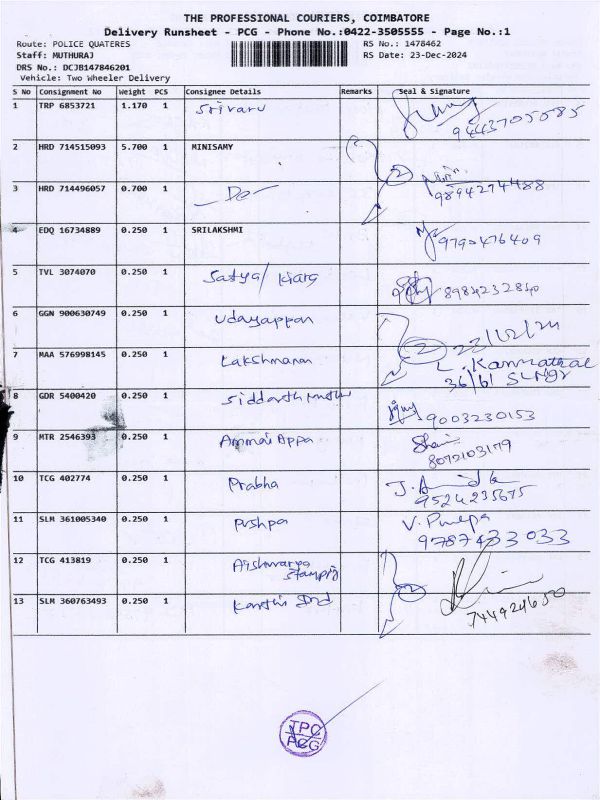 THE PROFESSIONAL COURIERS, COIMBATORE
Delivery Runsheet - PCG - Phone No.:0422-3505555 - Page No.:1
Route: POLICE QUATERES RS No.: 1478462
Staff: MUTHURAJ RS Date: 23-Dec-2024
DRS No.: DCJB147846201
Vehicle: Two Wheeler Delivery
S No Consignment No Weight PCS Consignee Details Remarks Seal & Signature
1 TRP 6853721 1.170 1 Srivaru
9443705585
2 HRD 714515093 5.700 1 MINISAMY
2
3 HRD 714496057 0.700 1 -Do-
9894274488
4 EDQ 16734889 0.250 1 SRILAKSHMI
9790476409
5 TVL 3074070 0.250 1 Satya/ Kiarg
8984232840
6 GGN 900630749 0.250 1 Udayappan
2 23/12/24
7 MAA 576998145 0.250 1 Lakshmanan
L. Kannathal
36/61 SLNgr
8 GDR 5400420 0.250 1 Siddarth Muthu
9003230153
9 MTR 2546393 0.250 1 Ammai Appa
8072103179
10 TCG 402774 0.250 1 Prabha
9524235675
11 SLM 361005340 0.250 1 Pushpa V. Puspa
9787433033
12 TCG 413819 0.250 1 Aishwarya
Stamping
2
13 SLM 360763493 0.250 1 Kanthi Ind
7449241650
TPC
PCG